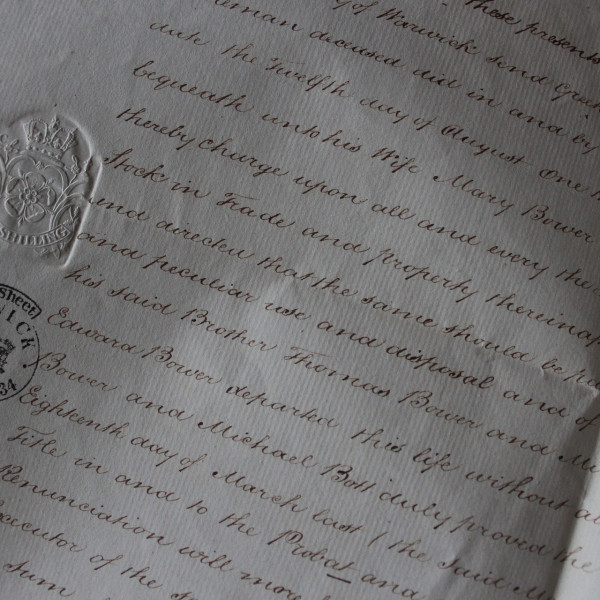 y of Warwick send Greet
These presents
leman deceased did in and by
date the Twelfth day of August One
bequeath unto his Wife Mary Bower
thereby charge upon all and every the
Stock in Trade and property therein
and directed that the same should be
and peculiar use and disposal and of
his said Brother Thomas Bower and
Edward Bower departed this life without
Bower and Michael Bott duly proved the
Eighteenth day of March last (the said
Title in and to the Probat and
Renunciation will more
xecutor of the
sum
SHILLING
Sheet
WICK
34